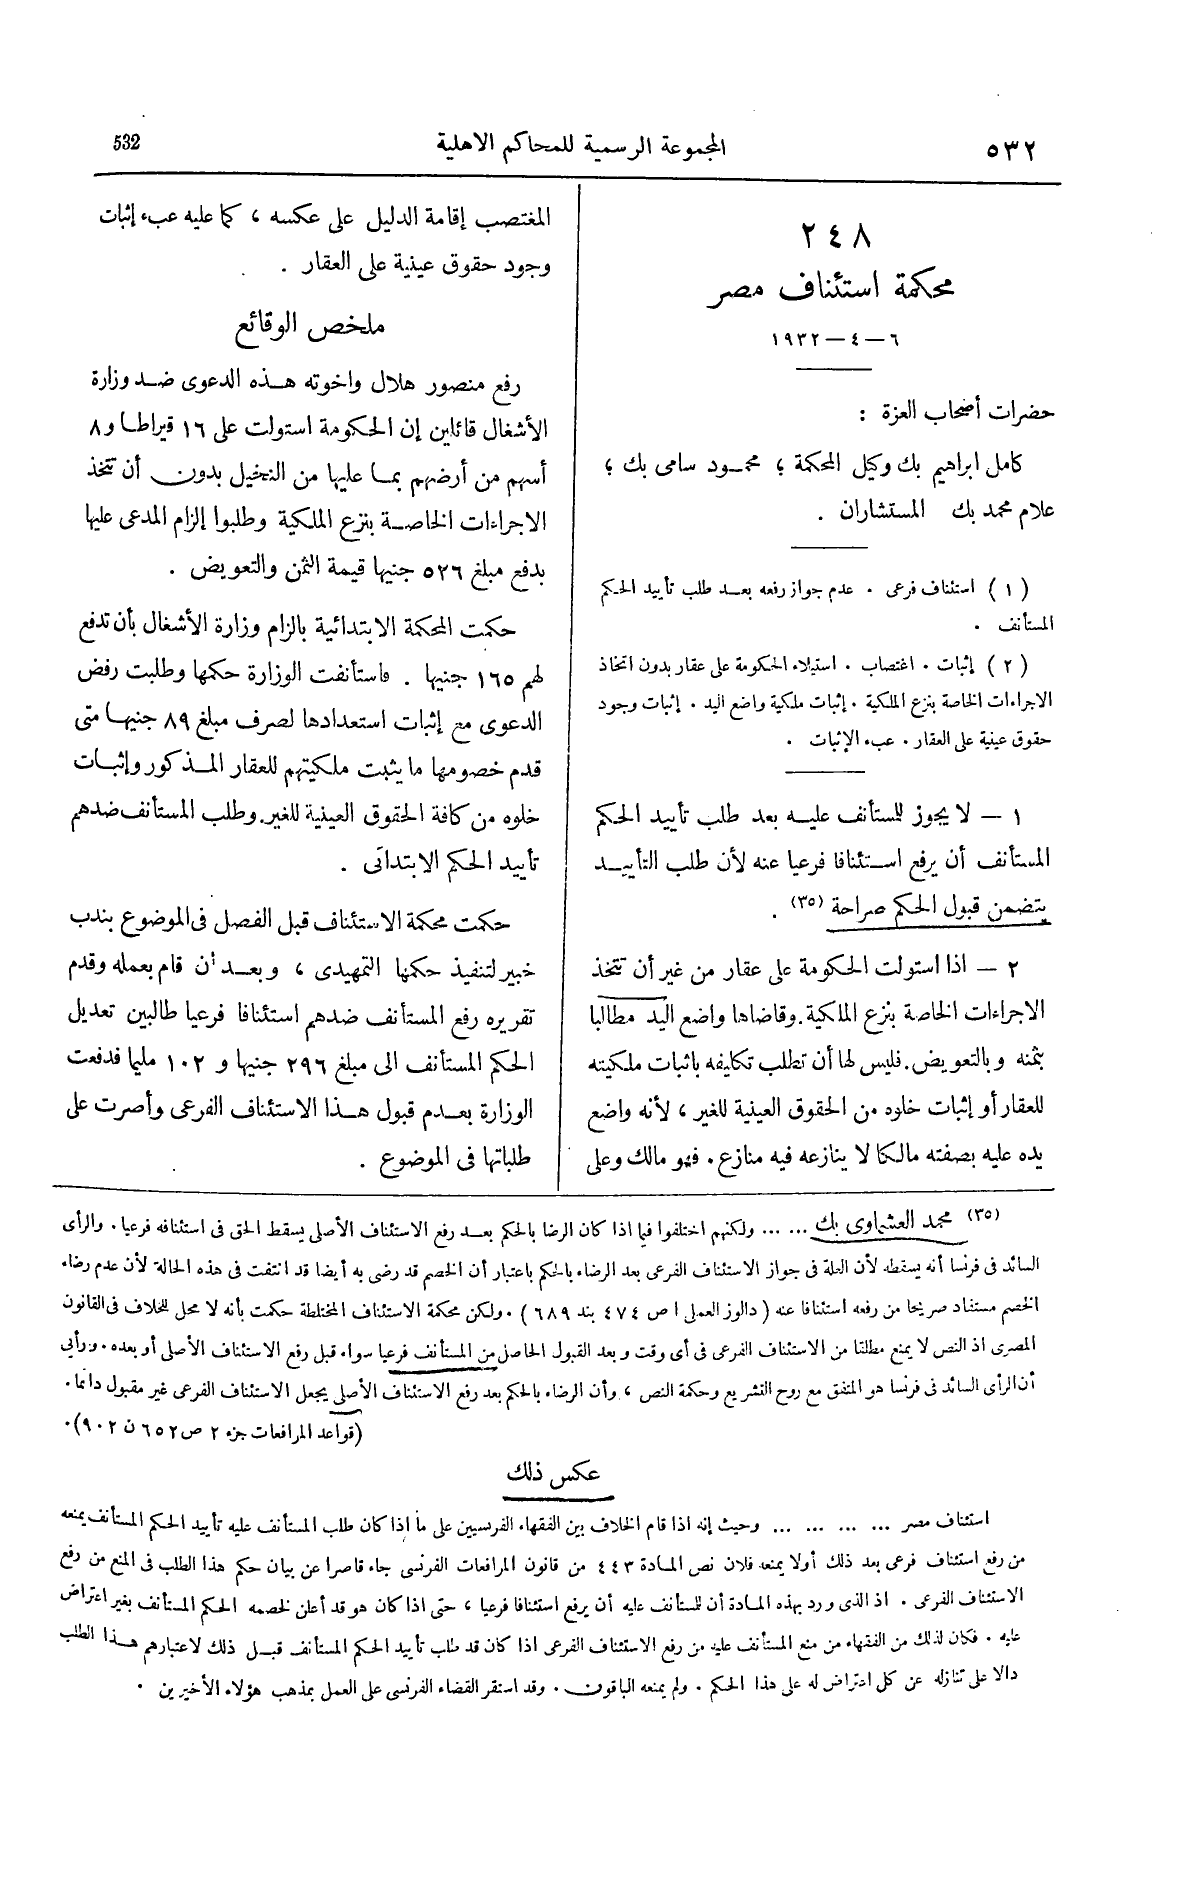 ٥٣٢
المجموعة الرسمية للمحاكم الاهلية
532
٢٤٨
محكمة استئناف مصر
٦ — ٤ — ١٩٣٢
حضرات أصحاب العزة :
كامل ابراهيم بك وكيل المحكمة ، محمود سامى بك ،
علام محمد بك المستشاران .
( ١ ) استئناف فرعى . عدم جواز رفعه بعد طلب تأييد الحكم
المستأنف .
( ٢ ) إثبات . اغتصاب . استيلاء الحكومة على عقار بدون اتخاذ
الاجراءات الخاصة بنزع الملكية . إثبات ملكية واضع اليد . إثبات وجود
حقوق عينية على العقار . عبء الإثبات .
١ — لا يجوز للمستأنف عليه بعد طلب تأييد الحكم
المستأنف أن يرفع استئنافا فرعيا عنه لأن طلب التأييد
يتضمن قبول الحكم صراحة (٣٥) .
٢ — اذا استولت الحكومة على عقار من غير أن تتخذ
الاجراءات الخاصة بنزع الملكية . وقاضاها واضع اليد مطالبا
بثمنه وبالتعويض . فليس لها أن تطلب تكليفه باثبات ملكيته
للعقار أو إثبات خلوه من الحقوق العينية للغير ، لأنه واضع
يده عليه بصفته مالكا لا ينازعه فيه منازع . فهو مالك وعلى
المغتصب إقامة الدليل على عكسه ، كما عليه عبء إثبات
وجود حقوق عينية على العقار .
ملخص الوقائع
رفع منصور هلال واخوته هذه الدعوى ضد وزارة
الأشغال قائلين إن الحكومة استولت على ١٦ قيراطا و ٨
أسهم من أرضهم بما عليها من النخيل بدون أن تتخذ
الاجراءات الخاصة بنزع الملكية وطلبوا إلزام المدعى عليها
بدفع مبلغ ٥٢٦ جنيها قيمة الثمن والتعويض .
حكمت المحكمة الابتدائية بالزام وزارة الأشغال بأن تدفع
لهم ١٦٥ جنيها . فاستأنفت الوزارة حكمها وطلبت رفض
الدعوى مع إثبات استعدادها لصرف مبلغ ٨٩ جنيها متى
قدم خصومها ما يثبت ملكيتهم للعقار المذكور وإثبات
خلوه من كافة الحقوق العينية للغير . وطلب المستأنف ضدهم
تأييد الحكم الابتدائى .
حكمت محكمة الاستئناف قبل الفصل فى الموضوع بندب
خبير لتنفيذ حكمها التمهيدى ، وبعد أن قام بعمله وقدم
تقريره رفع المستأنف ضدهم استئنافا فرعيا طالبين تعديل
الحكم المستأنف الى مبلغ ٢٩٦ جنيها و ١٠٢ مليما فدفعت
الوزارة بعدم قبول هذا الاستئناف الفرعى وأصرت على
طلباتها فى الموضوع .
(٣٥) محمد العشماوى بك ... ... ولكنهم اختلفوا فيما اذا كان الرضا بالحكم بعد رفع الاستئناف الأصلى يسقط الحق فى استئنافه فرعيا . والرأى
السائد فى فرنسا أنه يسقطه لأن العلة فى جواز الاستئناف الفرعى بعد الرضاء بالحكم باعتبار أن الخصم قد رضى به أيضا قد انتفت فى هذه الحالة لأن عدم رضاء
الخصم مستفاد صريحا من رفعه استئنافا عنه ( دالوز العملى ا ص ٤٧٤ بند ٦٨٩ ) . ولكن محكمة الاستئناف المختلطة حكمت بأنه لا محل للخلاف فى القانون
المصرى اذ النص لا يمنع مطلقا من الاستئناف الفرعى فى أى وقت وبعد القبول الحاصل من المستأنف فرعيا سواء قبل رفع الاستئناف الأصلى أو بعده . ورأيى
أن الرأى السائد فى فرنسا هو المتفق مع روح التشريع وحكمة النص ، وأن الرضاء بالحكم بعد رفع الاستئناف الأصلى يجعل الاستئناف الفرعى غير مقبول دائما .
(قواعد المرافعات جزء ٢ ص ٦٥٢ ن ٩٠٢) .
عكس ذلك
استئناف مصر ... ... ... ... وحيث إنه اذا قام الخلاف بين الفقهاء الفرنسيين على ما اذا كان طلب المستأنف عليه تأييد الحكم المستأنف يمنعه
من رفع استئناف فرعى بعد ذلك أولا يمنعه فلان نص المادة ٤٤٣ من قانون المرافعات الفرنسى جاء قاصرا عن بيان حكم هذا الطلب فى المنع من رفع
الاستئناف الفرعى . اذ الذى ورد بهذه المادة أن للمستأنف عليه أن يرفع استئنافا فرعيا ، حتى اذا كان هو قد أعلن لخصمه الحكم المستأنف بغير اعتراض
عليه . فكان لذلك من الفقهاء من منع المستأنف عليه من رفع الاستئناف الفرعى اذا كان قد طلب تأييد الحكم المستأنف قبل ذلك لاعتبارهم هذا الطلب
دالا على تنازله عن كل اعتراض له على هذا الحكم . ولم يمنعه الباقون . وقد استقر القضاء الفرنسى على العمل بمذهب هؤلاء الأخيرين .